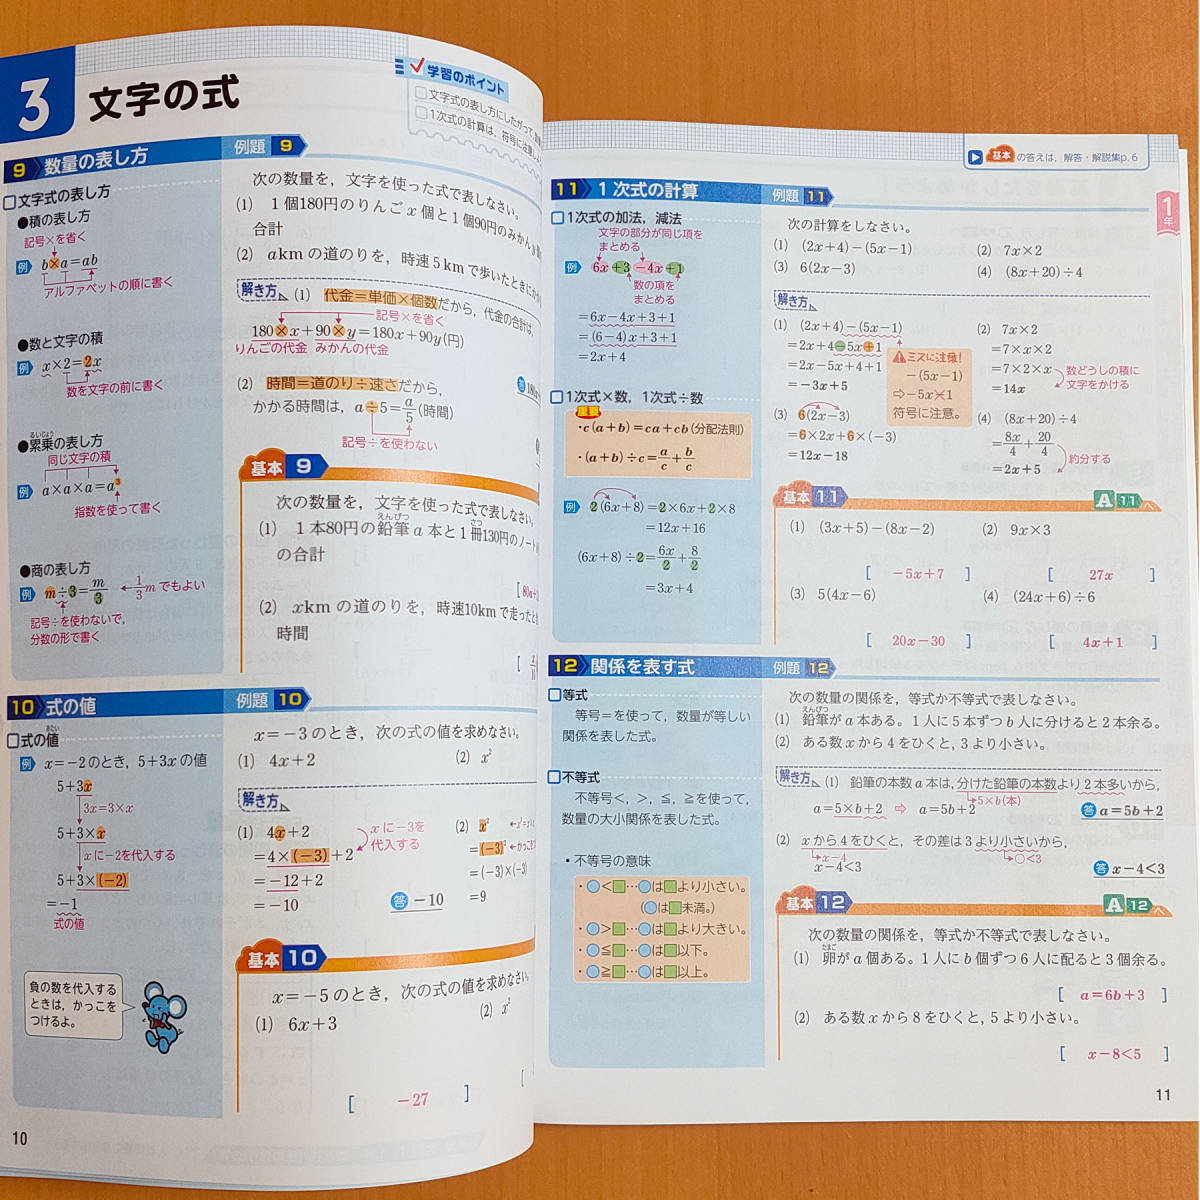 3 文字の式
学習のポイント
□文字式の表し方にしたがって,
□1次式の計算は, 符号に注意し
9 数量の表し方
□文字式の表し方
●積の表し方
記号×を省く
例 b×a=ab
アルファベットの順に書く
●数と文字の積
例 x×2=2x
数を文字の前に書く
るいじょう
●累乗の表し方
同じ文字の積
例 a×a×a=a³
指数を使って書く
●商の表し方
例 m÷3=m/3 ←1/3 m でもよい
記号÷を使わないで,
分数の形で書く
例題 9
次の数量を, 文字を使った式で表しなさい。
(1) 1個180円のりんごx個と1個90円のみかんy
合計
(2) akmの道のりを, 時速5kmで歩いたときに
解き方 (1) 代金=単価×個数だから, 代金の合計は,
記号×を省く
180×x+90×y=180x+90y(円)
りんごの代金 みかんの代金
答
(2) 時間=道のり÷速さだから,
かかる時間は, a÷5=a/5(時間)
記号÷を使わない
基本 9
次の数量を, 文字を使った式で表しなさい。
(1) 1本80円の鉛筆a本と1冊130円のノート
えんぴつ さつ
の合計
[ 80a+
(2) xkmの道のりを, 時速10kmで走ったと
時間
[
10 式の値
あたい
□式の値
例 x=-2のとき, 5+3xの値
5+3x
3x=3×x
5+3×x
xに-2を代入する
5+3×(-2)
=-1
式の値
負の数を代入する
ときは, かっこを
つけるよ。
例題 10
x=-3のとき, 次の式の値を求めなさい。
(1) 4x+2 (2) x²
解き方
(1) 4x+2
xに-3を
代入する
=4×(-3)+2
=-12+2
=-10
答 -10
(2) x²
=(-3)²
=(-3)×(-3)
=9
基本 10
x=-5のとき, 次の式の値を求めなさい。
(1) 6x+3 (2) x²
[ -27 ] [
10
基本 の答えは, 解答・解説集p.6
1年
11 1次式の計算
□1次式の加法, 減法
文字の部分が同じ項を
まとめる
例 6x+3-4x+1
数の項を
まとめる
=6x-4x+3+1
=(6-4)x+3+1
=2x+4
□1次式×数, 1次式÷数
重要
・c(a+b)=ca+cb(分配法則)
・(a+b)÷c=a/c+b/c
例 2(6x+8)=2×6x+2×8
=12x+16
(6x+8)÷2=6x/2+8/2
=3x+4
例題 11
次の計算をしなさい。
(1) (2x+4)-(5x-1) (2) 7x×2
(3) 6(2x-3) (4) (8x+20)÷4
解き方
(1) (2x+4)-(5x-1)
=2x+4-5x+1
=2x-5x+4+1
=-3x+5
ミスに注意!
-(5x-1)
⇨-5x×1
符号に注意。
(2) 7x×2
=7×x×2
=7×2×x
=14x
数どうしの積に
文字をかける
(3) 6(2x-3)
=6×2x+6×(-3)
=12x-18
(4) (8x+20)÷4
=8x/4+20/4
=2x+5
約分する
基本 11 A 11
(1) (3x+5)-(8x-2) (2) 9x×3
[ -5x+7 ] [ 27x ]
(3) 5(4x-6) (4) (24x+6)÷6
[ 20x-30 ] [ 4x+1 ]
12 関係を表す式
□等式
等号=を使って, 数量が等しい
関係を表した式。
□不等式
不等号<, >, ≦, ≧を使って,
数量の大小関係を表した式。
・不等号の意味
・○<□…○は□より小さい。
(○は□未満。)
・○>□…○は□より大きい。
・○≦□…○は□以下。
・○≧□…○は□以上。
例題 12
次の数量の関係を, 等式か不等式で表しなさい。
えんぴつ
(1) 鉛筆がa本ある。1人に5本ずつb人に分けると2本余る。
(2) ある数xから4をひくと, 3より小さい。
解き方 (1) 鉛筆の本数a本は, 分けた鉛筆の本数より2本多いから,
5×b(本)
a=5×b+2 ⇨ a=5b+2 答 a=5b+2
(2) xから4をひくと, その差は3より小さいから,
x-4 ○<3
x-4<3 答 x-4<3
基本 12 A 12
次の数量の関係を, 等式か不等式で表しなさい。
たまご
(1) 卵がa個ある。1人にb個ずつ6人に配ると3個余る。
[ a=6b+3 ]
(2) ある数xから8をひくと, 5より小さい。
[ x-8<5 ]
11